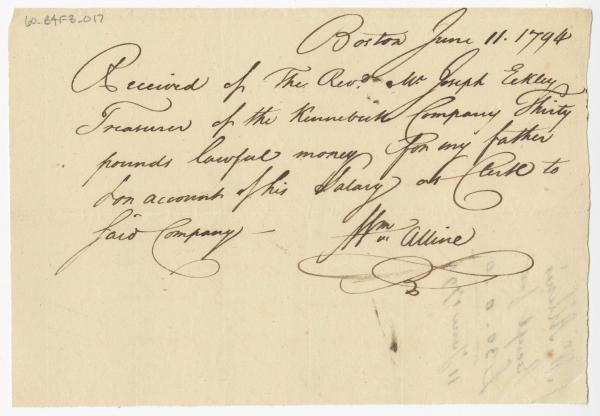 60-E4F3-017
Boston June 11. 1794
Received of The Revd. Mr Joseph Eckley
Treasurer of the Kennebeck Company Thirty
pounds lawful money for my father
on account of his Salary as Clerk to
said Company —
Wm Alline